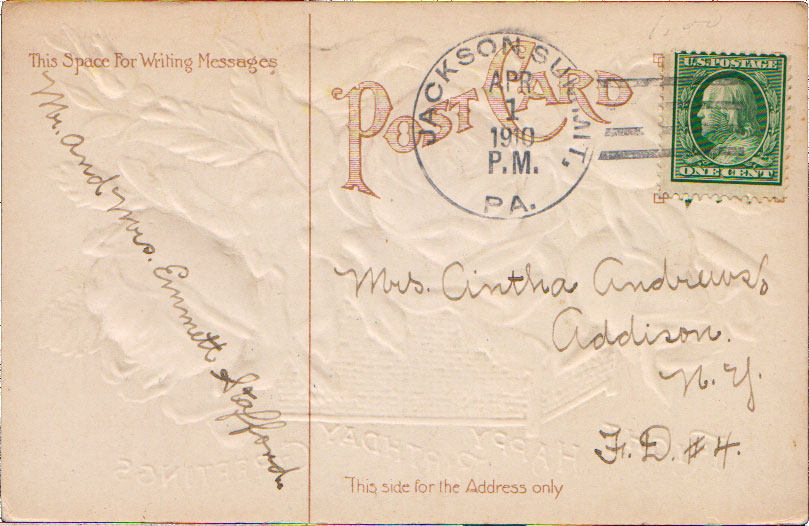 This Space For Writing Messages
POST CARD
JACKSON SUMMIT,
APR
1
1910
P.M.
PA.
U.S. POSTAGE
ONE CENT
Mr. and Mrs. Emmett Stafford
Mrs. Cintha Andrews
Addison.
N.Y.
F.D. #4.
HAPPY
BIRTHDAY
GREETINGS
This side for the Address only